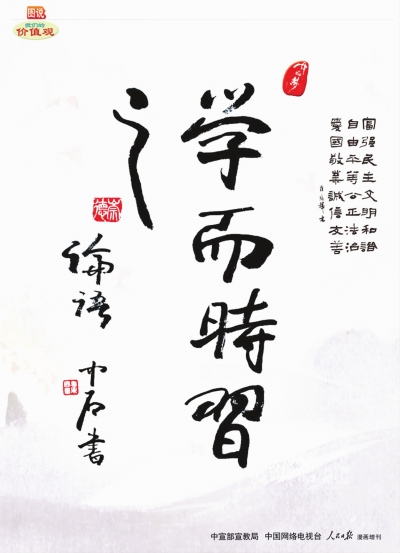 图说
我们的
价值观
中国梦
富强民主文明和諧
自由平等公正法治
愛國敬業誠信友善
学而時習
之
崇德
論語
中石書
中宣部宣教局 中国网络电视台 人民日报 漫画增刊